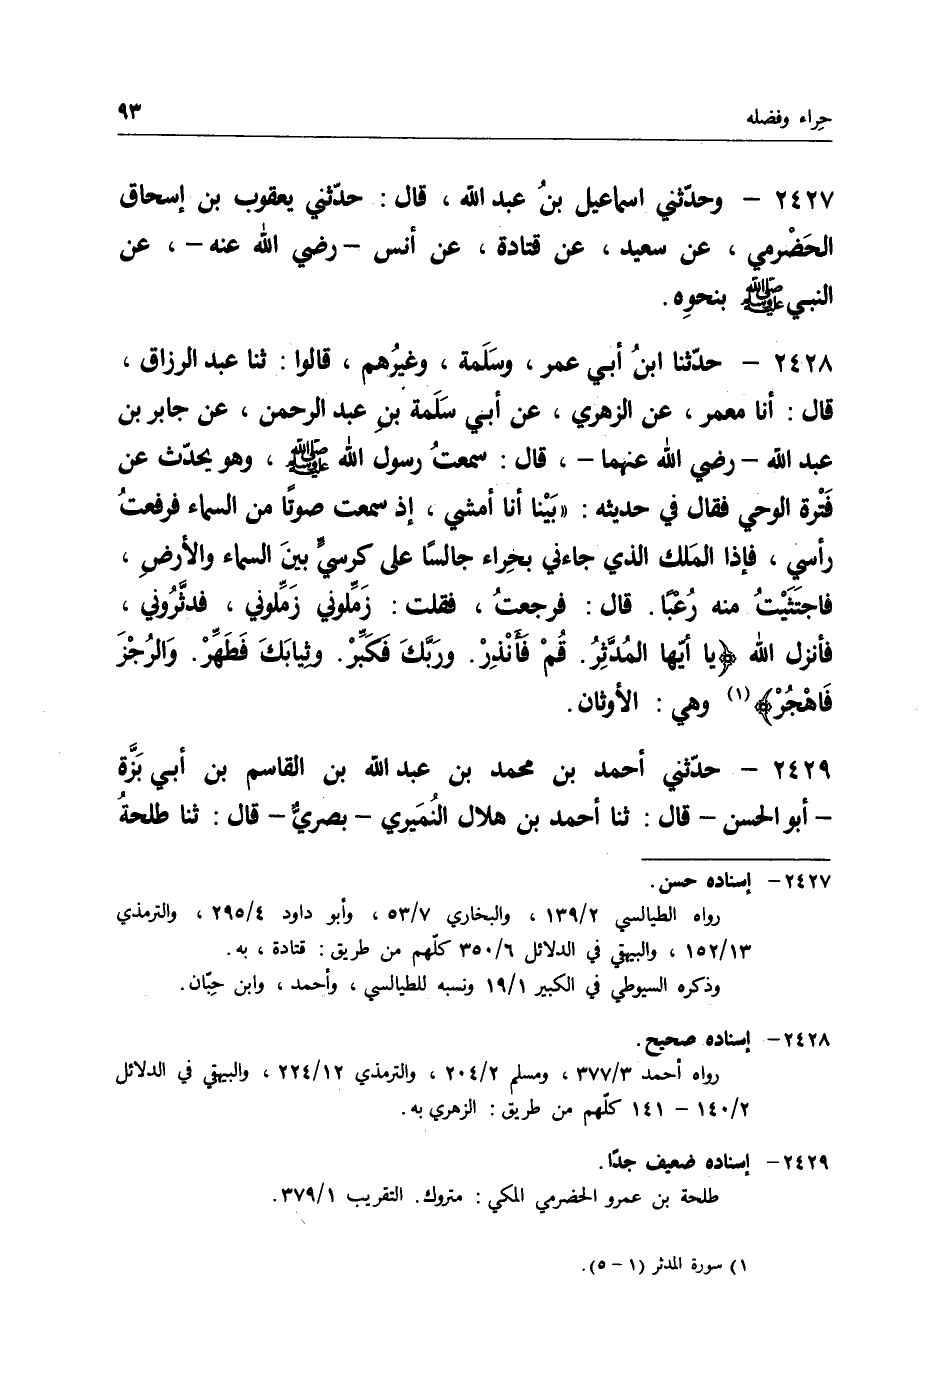 حِراء وفضله ٩٣
٢٤٢٧ – وحدّثني اسماعيل بنُ عبد الله ، قال : حدّثني يعقوب بن إسحاق
الحَضْرمي ، عن سعيد ، عن قتادة ، عن أنس –رضي الله عنه– ، عن
النبي ﷺ بنحوِه .
٢٤٢٨ – حدّثنا ابنُ أبي عمر ، وسَلَمة ، وغيرُهم ، قالوا : ثنا عبد الرزاق ،
قال : أنا معمر ، عن الزهري ، عن أبي سَلَمة بنِ عبد الرحمن ، عن جابر بن
عبد الله –رضي الله عنهما– ، قال : سمعتُ رسول الله ﷺ ، وهو يحدّث عن
فَتْرة الوحي فقال في حديثه : «بَيْنا أنا أمشي ، إذ سمعت صوتًا من السماء فرفعتُ
رأسي ، فإذا المَلك الذي جاءني بحِراء جالسًا على كرسيٍّ بينَ السماء والأرضِ ،
فاجتَثَيْتُ منه رُعْبًا. قال : فرجعتُ ، فقلت : زَمِّلوني زَمِّلوني ، فدثَّرُوني ،
فأنزل الله ﴿يا أيّها المُدَّثِرُ. قُمْ فَأَنْذِرْ. ورَبَّكَ فَكَبِّرْ. وثِيابَكَ فَطَهِّرْ. وَالرُجْزَ
فَاهْجُرْ﴾ (١) وهي : الأوثان .
٢٤٢٩ – حدّثني أحمد بن محمد بن عبد الله بن القاسم بن أبي بَزَّة
– أبو الحسن – قال : ثنا أحمد بن هلال النُميري – بصريٌّ – قال : ثنا طلحةُ
٢٤٢٧– إسناده حسن .
رواه الطيالسي ١٣٩/٢ ، والبخاري ٥٣/٧ ، وأبو داود ٢٩٥/٤ ، والترمذي
١٥٢/١٣ ، والبيهقي في الدلائل ٣٥٠/٦ كلّهم من طريق : قتادة ، به .
وذكره السيوطي في الكبير ١٩/١ ونسبه للطيالسي ، وأحمد ، وابن حبّان .
٢٤٢٨– إسناده صحيح .
رواه أحمد ٣٧٧/٣ ، ومسلم ٢٠٤/٢ ، والترمذي ٢٢٤/١٢ ، والبيهقي في الدلائل
١٤٠/٢ – ١٤١ كلّهم من طريق : الزهري به .
٢٤٢٩– إسناده ضعيف جدًا .
طلحة بن عمرو الحضرمي المكي : متروك. التقريب ٣٧٩/١ .
١) سورة المدثر (١ – ٥) .